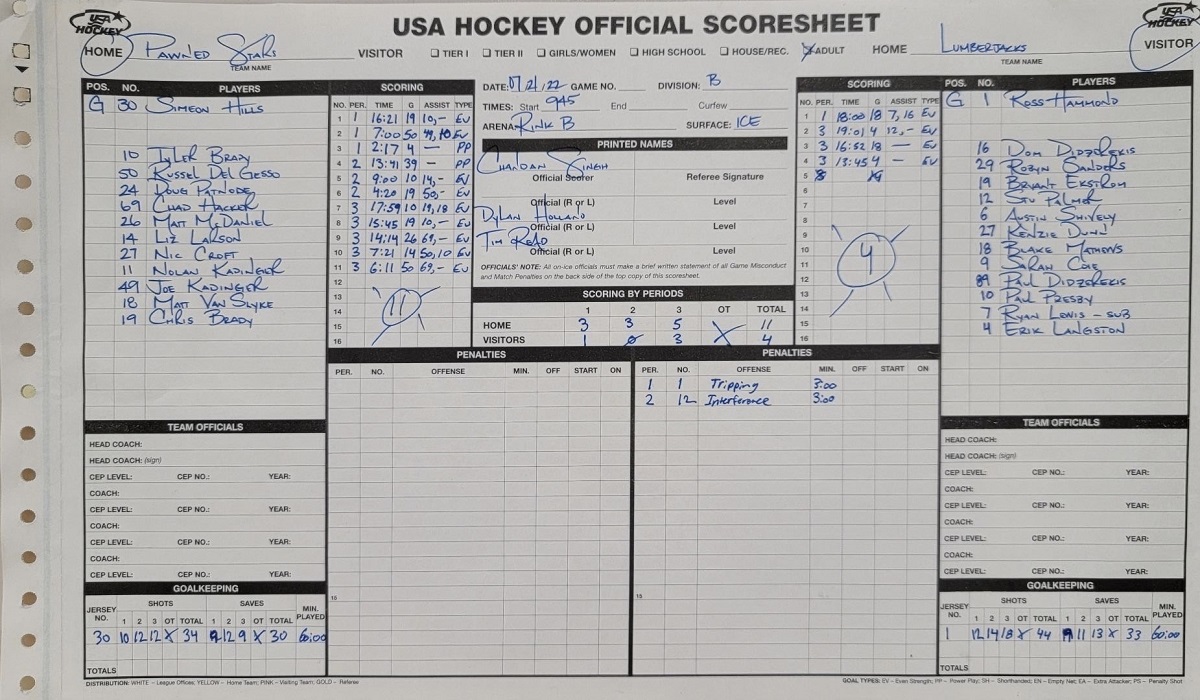 USA HOCKEY OFFICIAL SCORESHEET
USA HOCKEY
HOME PAWNED STARS
TEAM NAME
VISITOR ☐ TIER I ☐ TIER II ☐ GIRLS/WOMEN ☐ HIGH SCHOOL ☐ HOUSE/REC. ☒ ADULT HOME
LUMBERJACKS
TEAM NAME
USA HOCKEY
VISITOR
POS. NO. PLAYERS
G 30 SIMEON HILLS
10 TYLER BRADY
50 RUSSEL DEL GESSO
24 DOUG PATNODE
69 CHAD HACKER
26 MATT MCDANIEL
14 LIZ LARSON
27 NIC CROFT
11 NOLAN KADINGER
49 JOE KADINGER
18 MATT VAN SLYKE
19 CHRIS BRADY
SCORING
NO. PER. TIME G ASSIST TYPE
1 1 16:21 19 10,- EV
2 1 7:00 50 49,10 EV
3 1 2:17 4 - PP
4 2 13:41 39 - PP
5 2 9:00 10 14,- EV
6 2 4:20 19 50,- EV
7 3 17:59 10 19,18 EV
8 3 15:45 19 10,- EV
9 3 14:14 26 69,- EV
10 3 7:21 14 50,10 EV
11 3 6:11 50 69,- EV
12
13
14
15
16
11
DATE: 07/21/22 GAME NO. DIVISION: B
TIMES: Start 945 End Curfew
ARENA: RINK B SURFACE: ICE
PRINTED NAMES
CHANDAN SINGH
Official Scorer Referee Signature
Official (R or L) Level
DYLAN HOLLAND
Official (R or L) Level
TIM
Official (R or L) Level
OFFICIALS' NOTE: All on-ice officials must make a brief written statement of all Game Misconduct
and Match Penalties on the back side of the top copy of this scoresheet.
SCORING BY PERIODS
1 2 3 OT TOTAL
HOME 3 3 5 X 11
VISITORS 1 0 3 4
SCORING
NO. PER. TIME G ASSIST TYPE
1 1 18:00 18 7,16 EV
2 3 19:01 4 12,- EV
3 3 16:52 18 - EV
4 3 13:45 4 - EV
5
6
7
8
9
10
11
12
13
14
15
16
4
POS. NO. PLAYERS
G 1 ROSS HAMMOND
16 DOM DIDZEREKIS
29 ROBYN SANDERS
19 BRYANT EKSTROM
12 STU PALMER
6 AUSTIN SHIVELY
27 KENZIE DUNN
18 BLAKE MATHEWS
9 SARAH COLE
89 PAUL DIDZEREKIS
10 PAUL PRESBY
7 RYAN LEWIS - SUB
4 ERIK LANGSTON
PENALTIES
PER. NO. OFFENSE MIN. OFF START ON
15
PENALTIES
PER. NO. OFFENSE MIN. OFF START ON
1 1 Tripping 3:00
2 12 Interference 3:00
15
TEAM OFFICIALS
HEAD COACH:
HEAD COACH: (sign)
CEP LEVEL: CEP NO.: YEAR:
COACH:
CEP LEVEL: CEP NO.: YEAR:
COACH:
CEP LEVEL: CEP NO.: YEAR:
COACH:
CEP LEVEL: CEP NO.: YEAR:
GOALKEEPING
JERSEY NO. SHOTS SAVES MIN. PLAYED
1 2 3 OT TOTAL 1 2 3 OT TOTAL
30 10 12 12 X 34 9 12 9 X 30 60:00
TOTALS
TEAM OFFICIALS
HEAD COACH:
HEAD COACH: (sign)
CEP LEVEL: CEP NO.: YEAR:
COACH:
CEP LEVEL: CEP NO.: YEAR:
COACH:
CEP LEVEL: CEP NO.: YEAR:
COACH:
CEP LEVEL: CEP NO.: YEAR:
GOALKEEPING
JERSEY NO. SHOTS SAVES MIN. PLAYED
1 2 3 OT TOTAL 1 2 3 OT TOTAL
1 12 14 18 X 44 9 11 13 X 33 60:00
TOTALS
DISTRIBUTION: WHITE – League Offices; YELLOW – Home Team; PINK – Visiting Team; GOLD – Referee
GOAL TYPES: EV – Even Strength; PP – Power Play; SH – Shorthanded; EN – Empty Net; EA – Extra Attacker; PS – Penalty Shot